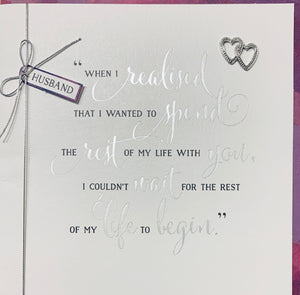 HUSBAND
"WHEN I realised
THAT I WANTED TO spend
THE rest OF MY LIFE WITH you,
I COULDN'T wait FOR THE REST
OF MY life TO begin."